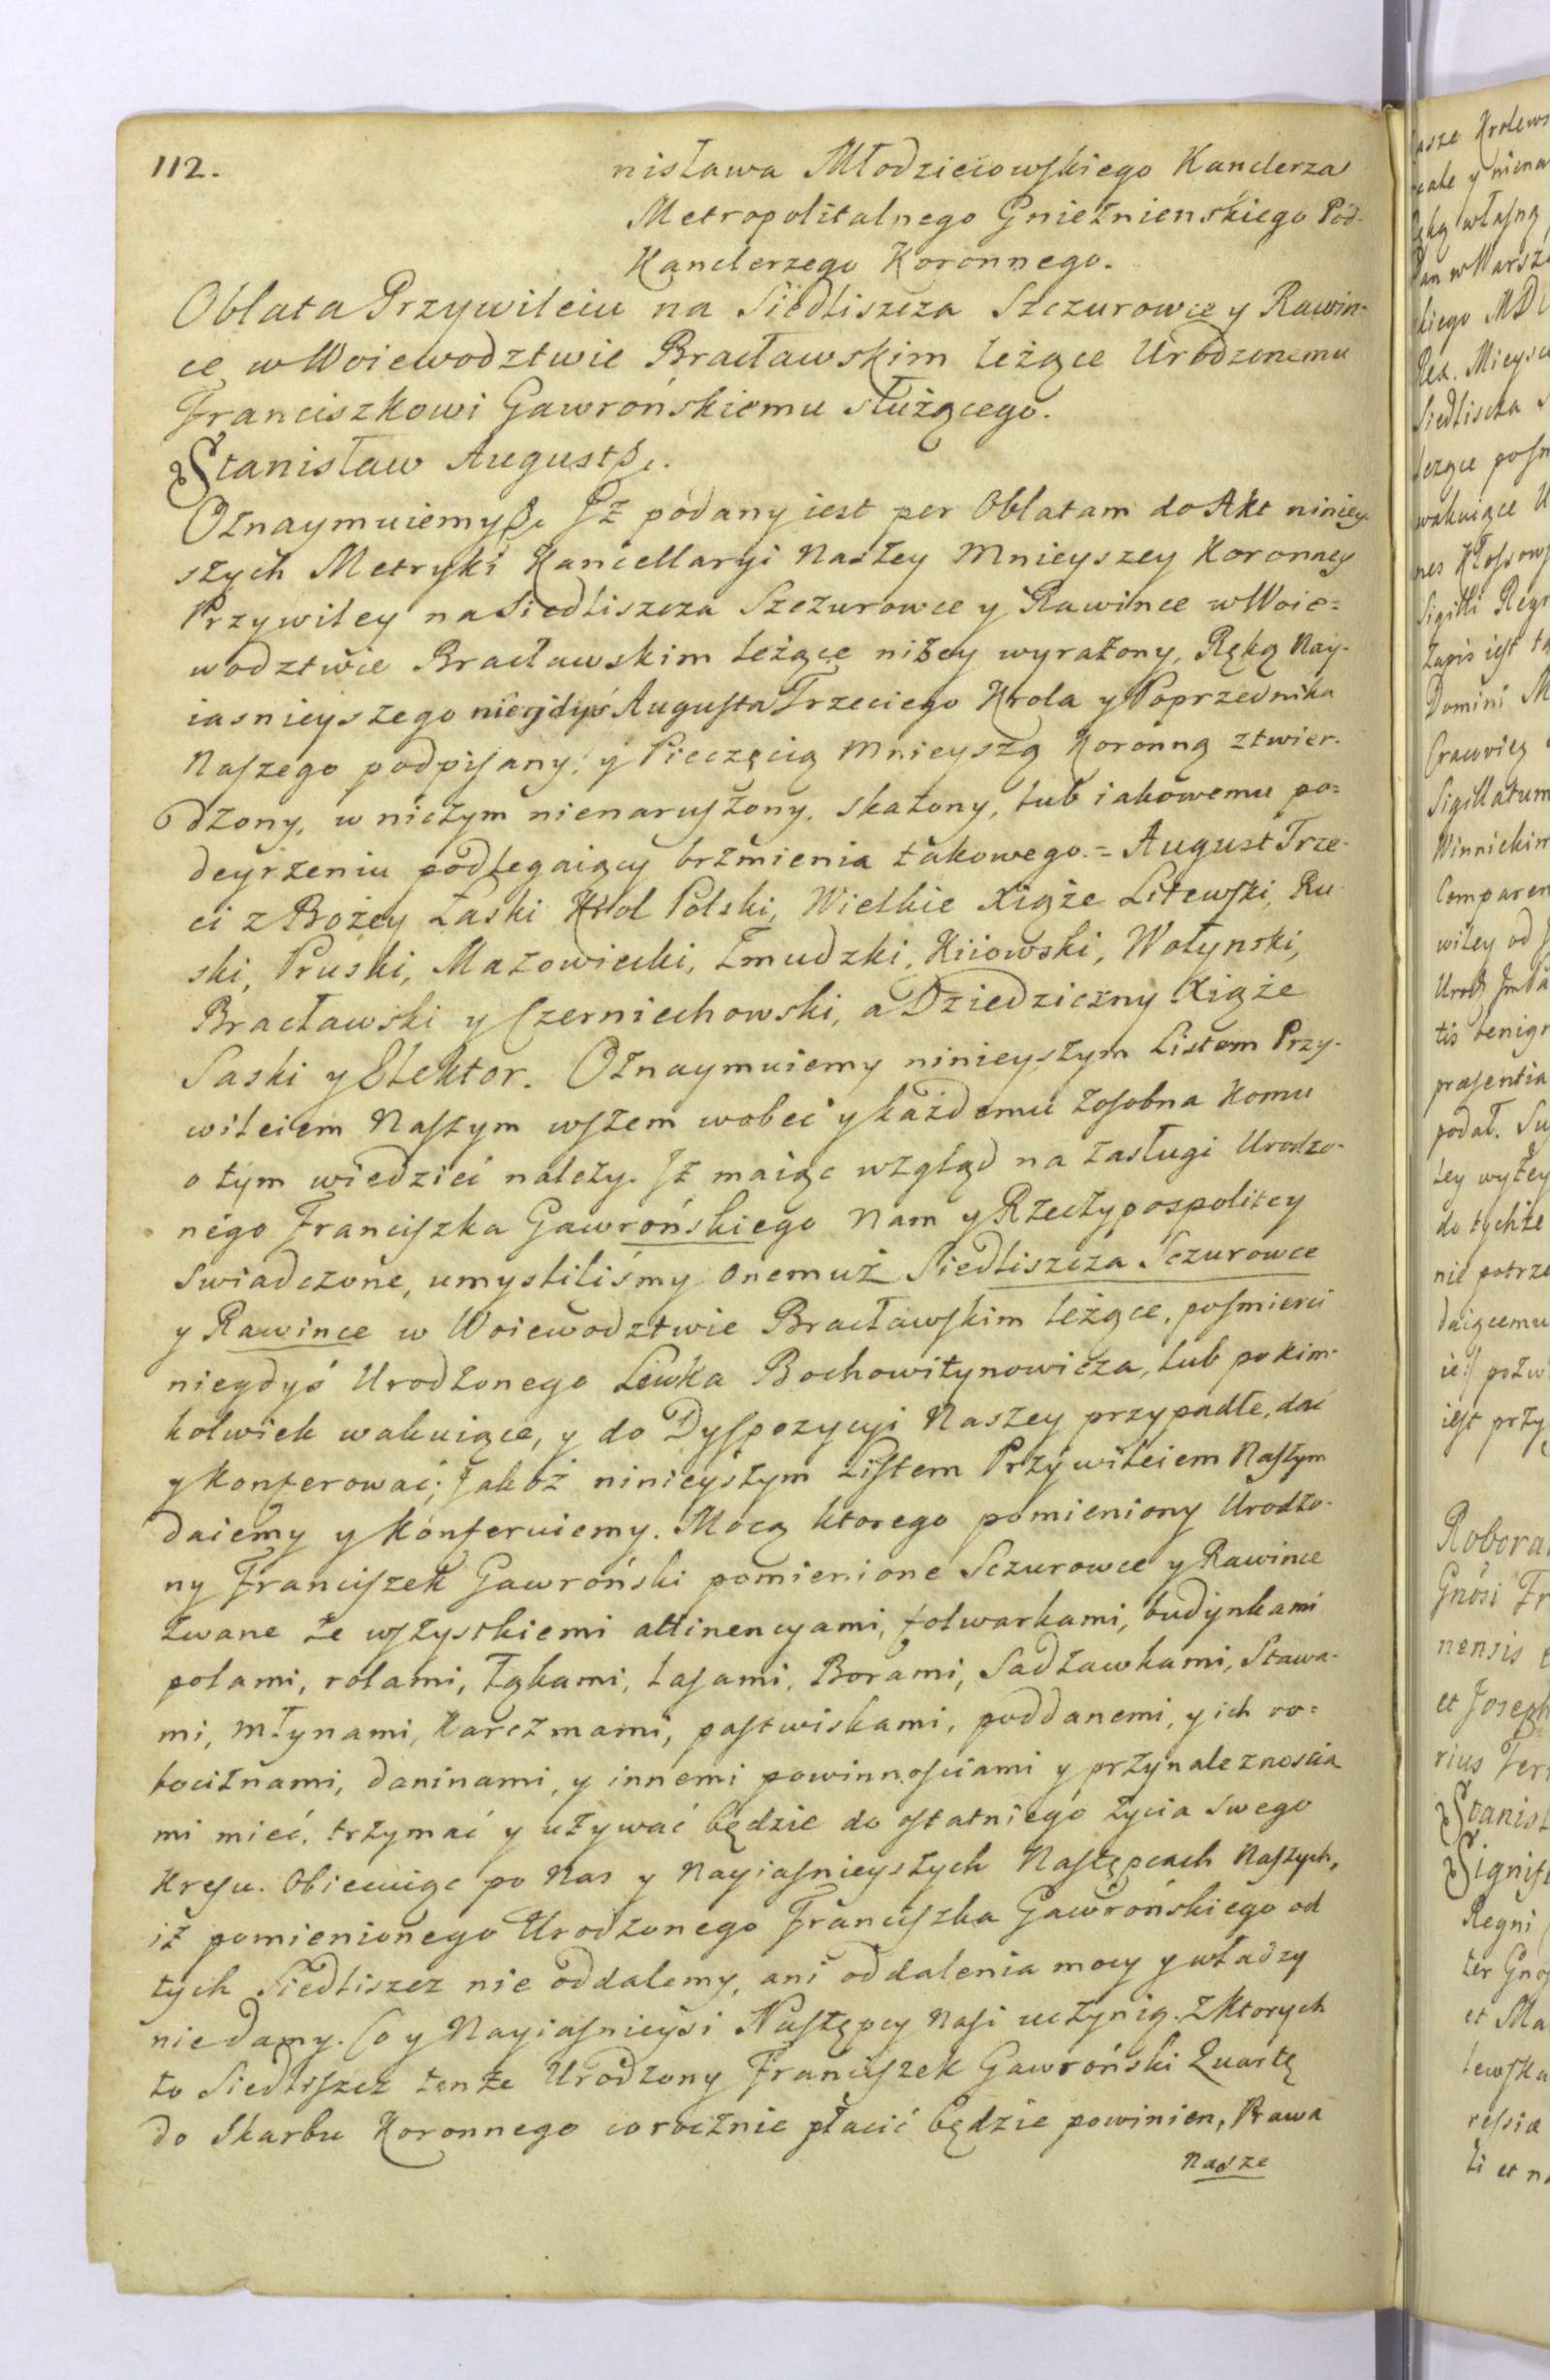 112.
nisława Młodzieiowskiego Kanclerza
Metropolitalnego Gnieznienskiego Pod-
Kanclerzego Koronnego.
Oblata Przywileiu na Siedliszcza Szczurowce y Rawin-
ce w Woiewodztwie Bracławskim leżące Urodzonemu
Franciszkowi Gawrońskiemu służącego.
Stanisław August &c.
Oznaymuiemy &c. Iż podany iest per Oblatam do Akt niniey-
szych Metryki Kancellaryi Naszey Mnieyszey Koronney
Przywiley na Siedliszcza Szczurowce y Rawince w Woie=
wodztwie Bracławskim leżące niżey wyrażony, Ręką Nay-
iasnieyszego niegdyś Augusta Trzeciego Krola y Poprzednika
Naszego podpisany, y Pieczęcią Mnieyszą Koronną ztwier-
dzony, w niczym nienaruszony, skażony, lub iakowemu po=
deyrzeniu podlegaiący brzmienia takowego.= August Trze-
ci z Bożey Łaski Krol Polski, Wielkie Xiąże Litewski, Ru-
ski, Pruski, Mazowiecki, Żmudzki, Kiiowski, Wołynski,
Bracławski y Czerniechowski, a Dziedziczny Xiąże
Saski y Elektor. Oznaymuiemy ninieyszym Listem Przy-
wileiem Naszym wszem wobec y każdemu zosobna komu
o tym wiedzieć należy. Iż maiąc wzgląd na zasługi Urodzo-
nego Franciszka Gawrońskiego Nam y Rzeczypospolitey
swiadczone, umysliliśmy onemuż Siedliszcza Sczurowce
y Rawince w Woiewodztwie Bracławskim leżące, po smierci
niegdyś Urodzonego Lewka Bochowitynowicza, lub po kim-
kolwiek wakuiące, y do Dyspozycyi Naszey przypadłe, dać
y konferować; Jakoż ninieyszym Listem Przywileiem Naszym
daiemy y konferuiemy. Mocą ktorego pomieniony Urodzo-
ny Franciszek Gawroński pomienione Sczurowce y Rawince
zwane ze wszystkiemi attinencyami, folwarkami, budynkami
polami, rolami, łąkami, lasami, Borami, Sadzawkami, Stawa-
mi, młynami, karczmami, pastwiskami, poddanemi, y ich ro=
bociznami, daninami, y innemi powinnościami y przynaleznoscia
mi mieć, trzymać y używać będzie do ostatniego życia swego
kresu. Obiecuiąc po Nas y Nayiasnieyszych Następcach Naszych,
iż pomienionego Urodzonego Franciszka Gawrońskiego od
tych Siedliszcz nie oddalemy, ani oddalenia mocy y władzy
nie damy. Co y Nayiasnieysi Następcy Nasi uczynią. Z ktorych
to Siedliszcz tenże Urodzony Franciszek Gawroński Quartę
do Skarbu Koronnego corocznie płacić będzie powinien, Prawa
Nasze